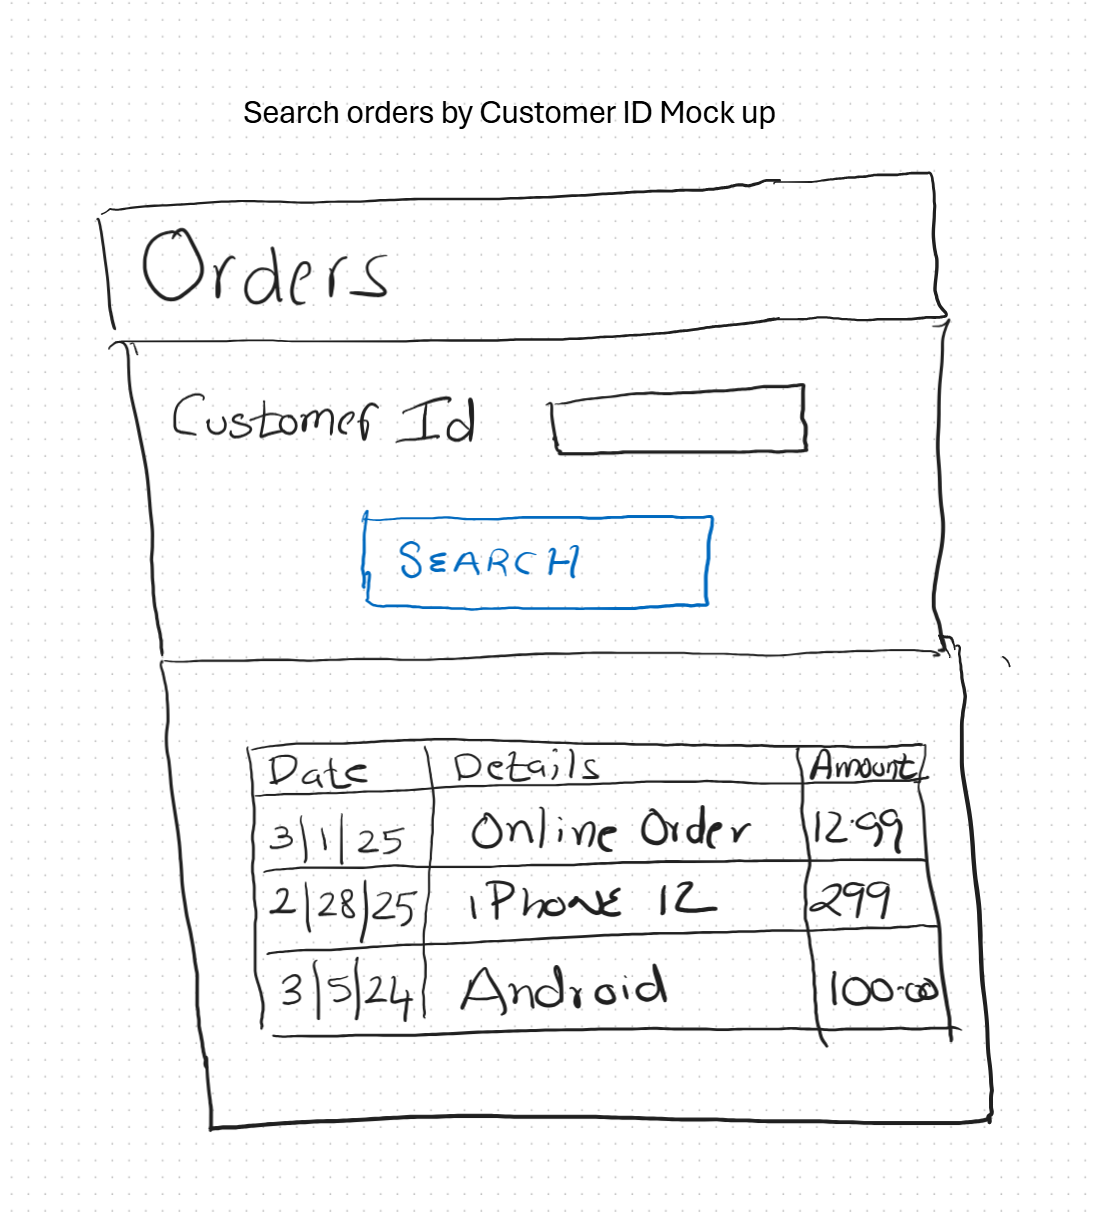 Search orders by Customer ID Mock up
Orders
Customer Id
SEARCH
Date Details Amount
3/1/25 Online Order 12.99
2/28/25 iPhone 12 299
3/5/24 Android 100.00